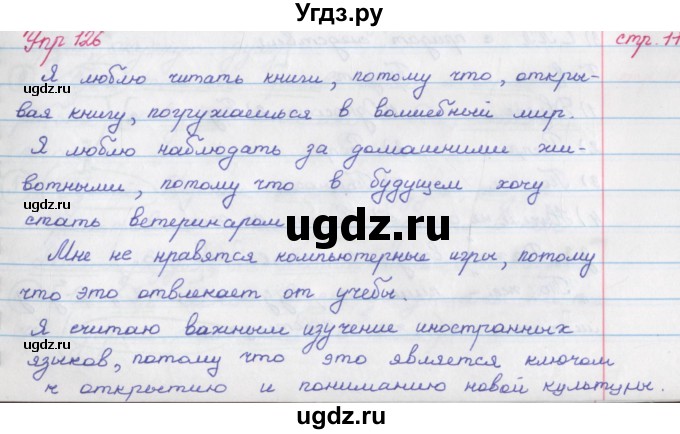 Угдз.ру
Упр 126
стр. 11
Я люблю читать книги, потому что, откры-
вая книгу, погружаешься в волшебный мир.
Я люблю наблюдать за домашними жи-
вотными, потому что в будущем хочу
стать ветеринаром
ugdz.ru
Мне не нравятся компьютерные игры, потому
что это отвлекает от учебы.
Я считаю важным изучение иностранных
языков, потому что это является ключом
к открытию и пониманию новой культуры.
ugdz.ru
ugdz.ru
ugdz.ru
ugdz.ru
ugdz.ru
ugdz.ru
ugdz.ru
ugdz.ru